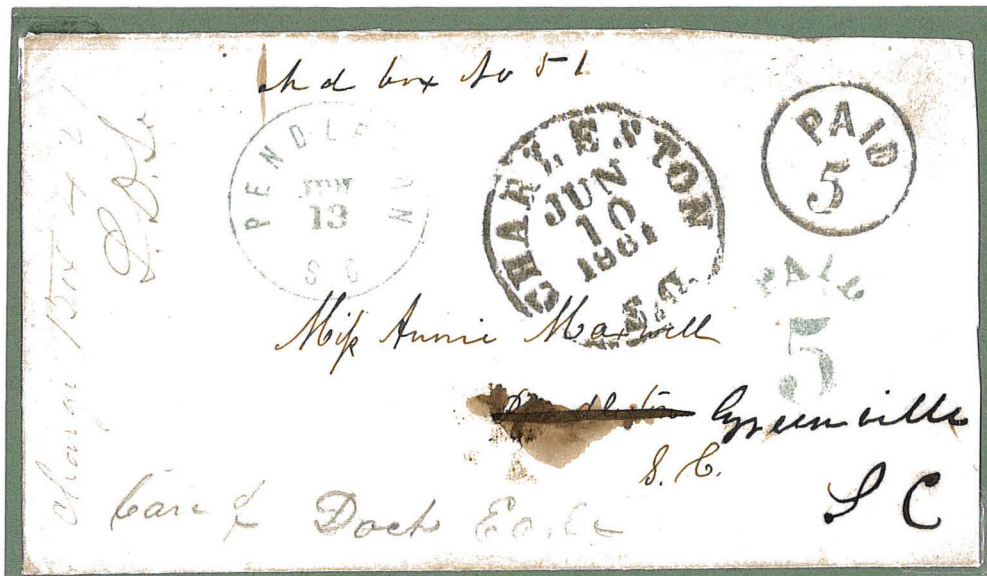 box No 51
PENDLE N
JUN
13
S C
CHARLESTON
JUN
10
1861
S.C.
PAID
5
PAID
5
Miss Annie Maxwell
Greenville
S. C.
S C
Care of Doch Earle
charge Box